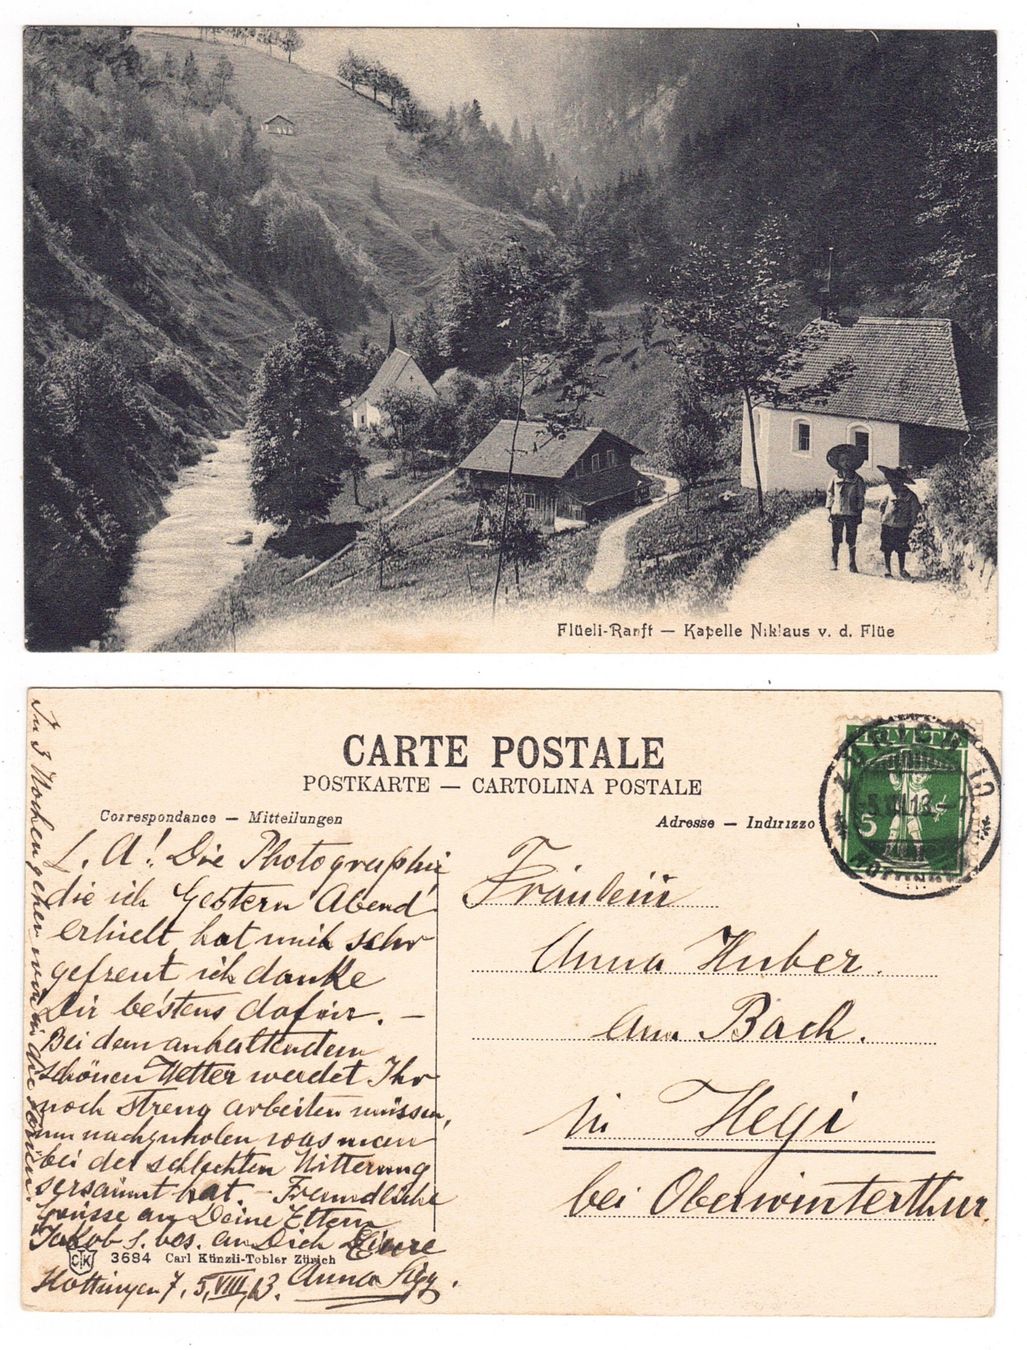 Flüeli-Ranft — Kapelle Niklaus v. d. Flüe
CARTE POSTALE
POSTKARTE — CARTOLINA POSTALE
Correspondance — Mitteilungen
Adresse — Indirizzo
ZÜRICH 10
5
HOTTINGEN
L. A! Die Photographie
die ich Gestern Abend
erhielt, hat mich sehr
gefreut, ich danke
Dir bestens dafür. —
Bei dem anhaltendem
schönen Wetter werdet Ihr
noch streng arbeiten müssen,
um nachzuholen was man
bei der schlechten Witterung
versäumt hat. — Freundliche
Grüsse an Deine Eltern
Jakob s. bes. an Dich Eure
Anna
Hottingen 7, 5, VIII, 13.
In 3 Wochen gehen wir in die Ferien.
CK 3684 Carl Künzli-Tobler Zürich
Fräulein
Anna Huber.
am Bach.
in Hegi
bei Oberwinterthur.